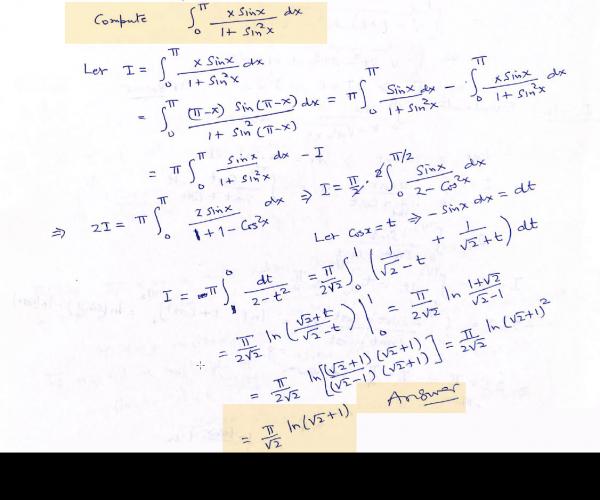 Compute ∫₀^π x sinx / (1 + sin²x) dx
Let I = ∫₀^π x sinx / (1 + sin²x) dx
= ∫₀^π (π-x) sin(π-x) / (1 + sin²(π-x)) dx = π ∫₀^π sinx dx / (1 + sin²x) - ∫₀^π x sinx / (1 + sin²x) dx
= π ∫₀^π sinx / (1 + sin²x) dx - I
⇒ 2I = π ∫₀^π 2 sinx / (1 + 1 - cos²x) dx ⇒ I = π/2 · 2 ∫₀^(π/2) sinx / (2 - cos²x) dx
Let cosx = t ⇒ - sinx dx = dt
I = -π ∫₁⁰ dt / (2 - t²) = π/(2√2) ∫₀¹ (1/(√2 - t) + 1/(√2 + t)) dt
= π/(2√2) ln((√2 + t)/(√2 - t)) |₀¹ = π/(2√2) ln (1+√2)/(√2-1)
= π/(2√2) ln[(√2+1)(√2+1) / (√2-1)(√2+1)] = π/(2√2) ln(√2+1)²
= π/√2 ln(√2+1) Answer